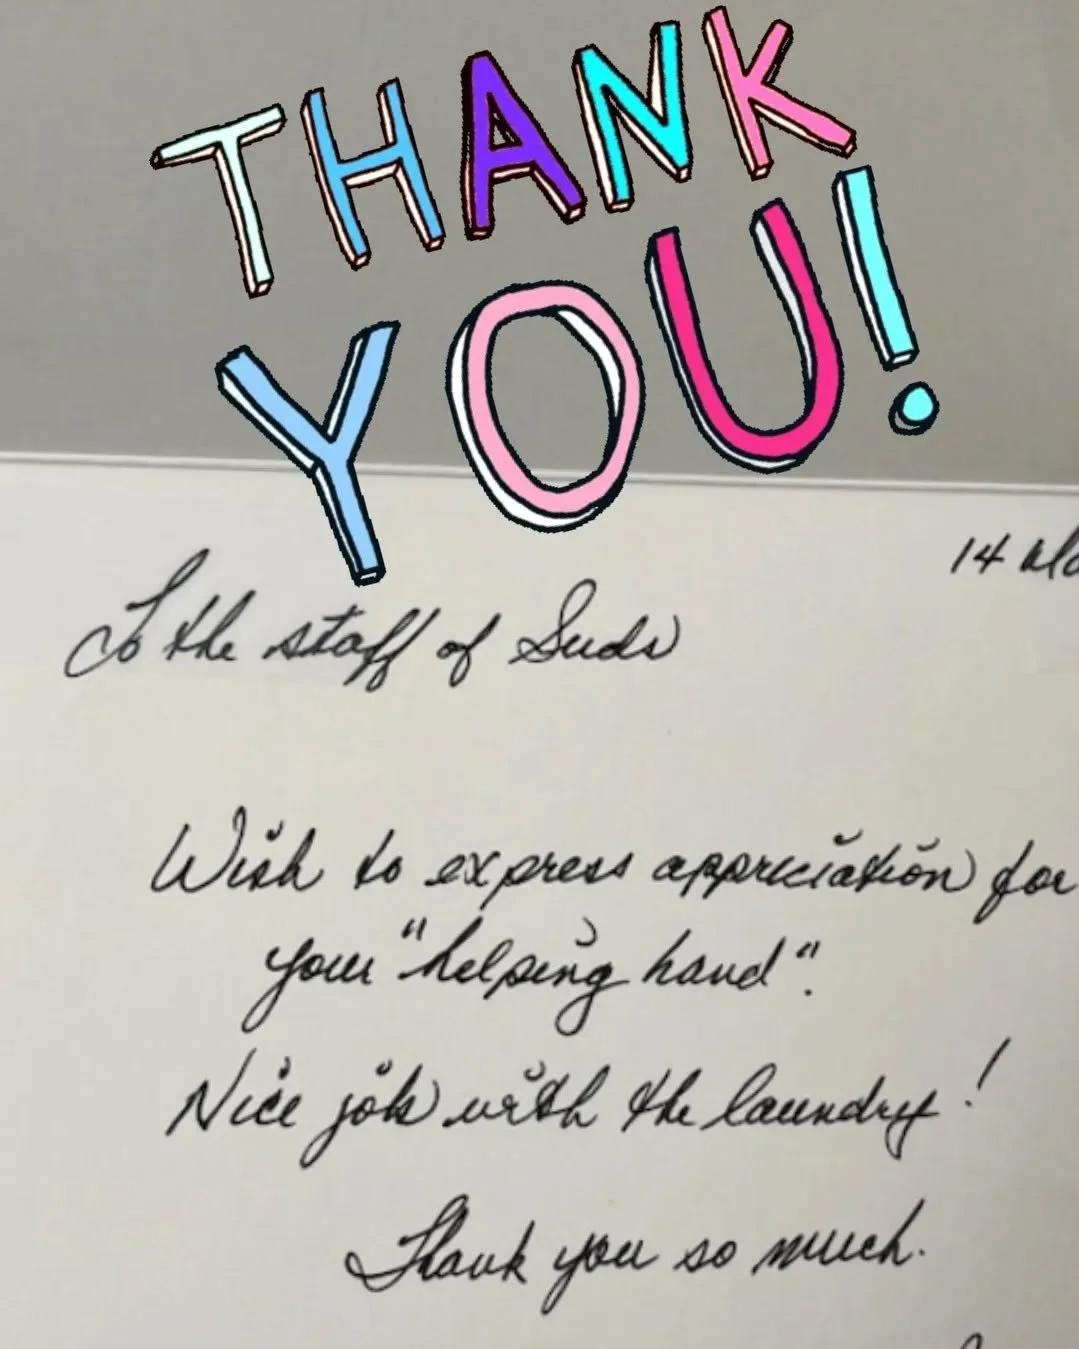 THANK
YOU!
14
To the staff of Suds
Wish to express appreciation for
your "helping hand".
Nice job with the laundry!
Thank you so much.